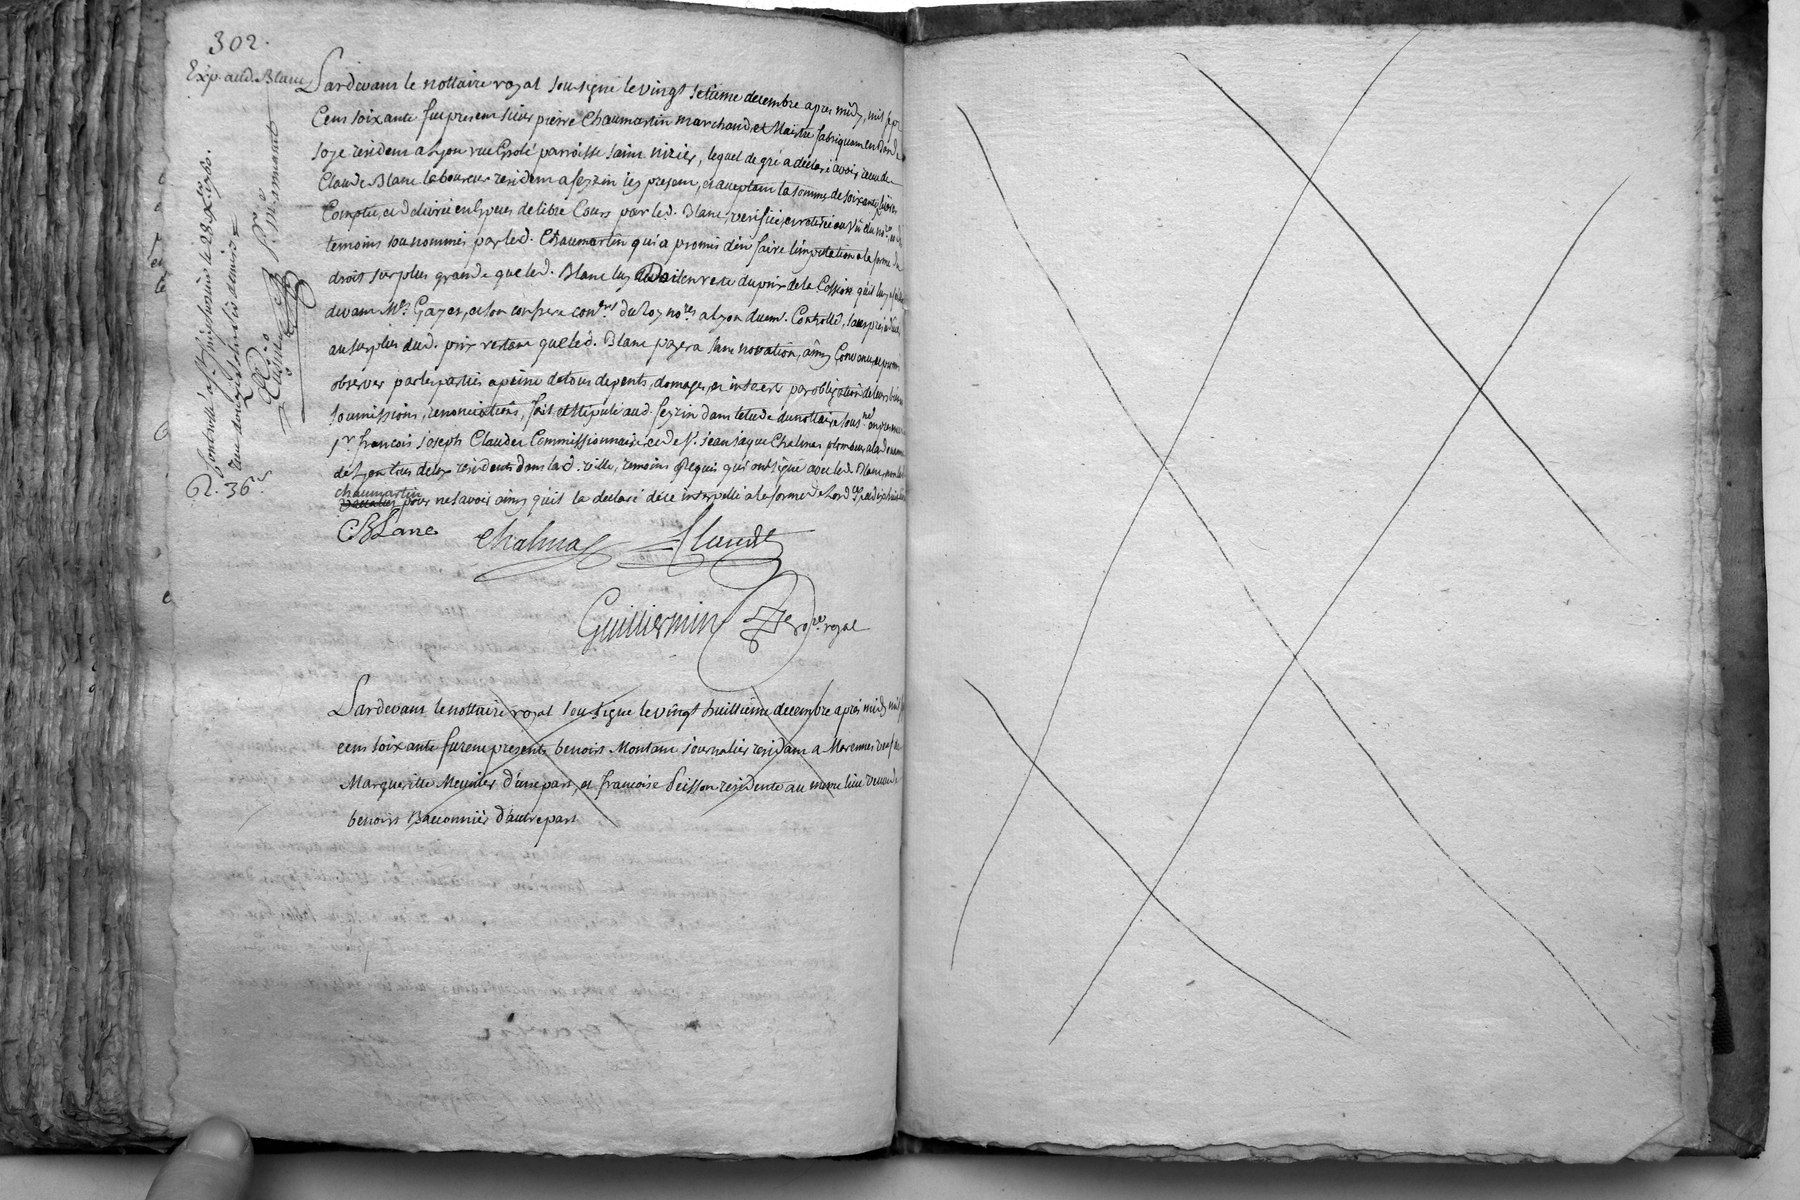 302.
Exp. aud. Blanc
Pardevant le nottaire royal sousigné le vingt setième decembre apres midy, mil sept
Cent soixante fut present sieur pierre Chaumartin marchand et Maitre fabriquant en
soye resident a Lyon rue parroisse saint nizier, lequel de gré a déclaré avoir receu de
Claude Blanc laboureur resident a feyzin icy present, et acceptant la somme de soixante livres
Comptée, et delivrée en Especes de libre Cours par led. Blanc, verifiée, et retirée au vû du nore. et
temoins sousnommés par led. Chaumartin qui a promis d'en faire l'imputation a la forme du
droit sur plus grande que led. Blanc luy doit en reste du prix de la Cession qu'il luy a
devant Me. Gayet, et son confrere coners. du Roy nores. a Lyon duem. Controllé, sans prejudice
au surplus dud. prix restant que led. Blanc payera sans novation, ainsy Convenu, et promis
observer par les parties a peine de tous depents, domages, et interets par obligation de leurs biens
soumissions, renonciations, fait et stipulé aud. feyzin dans l'etude du nottaire sousné. en presence
sr. francois joseph Claudet Commissionnaire, et de sr. jean jaque Chalmas plombeur a la douanne
de Lyon tous deux residents dans lad. ville, temoins Requis qui ont signé avec led. Blanc, non led.
chaumartin
pour ne savoir ainsy qu'il la declaré de ce interpellé a la forme de
CBLanc
Chalmas
Claudet
Guilliermin
nore. royal
Controllé a st. simphorien le 28 xbre. 1760.
reçu douze sols six deniers
6l. 36s.
Pardevant le nottaire royal sousigné le vingt huittième decembre après midy mil
cent soixante furent presents benoist Montant journalier residant a Marennes veuf de
Margueritte Meunier d'une part, et francoise Peisson residente au meme lieu veuve de
benoist Baconnier d'autre part